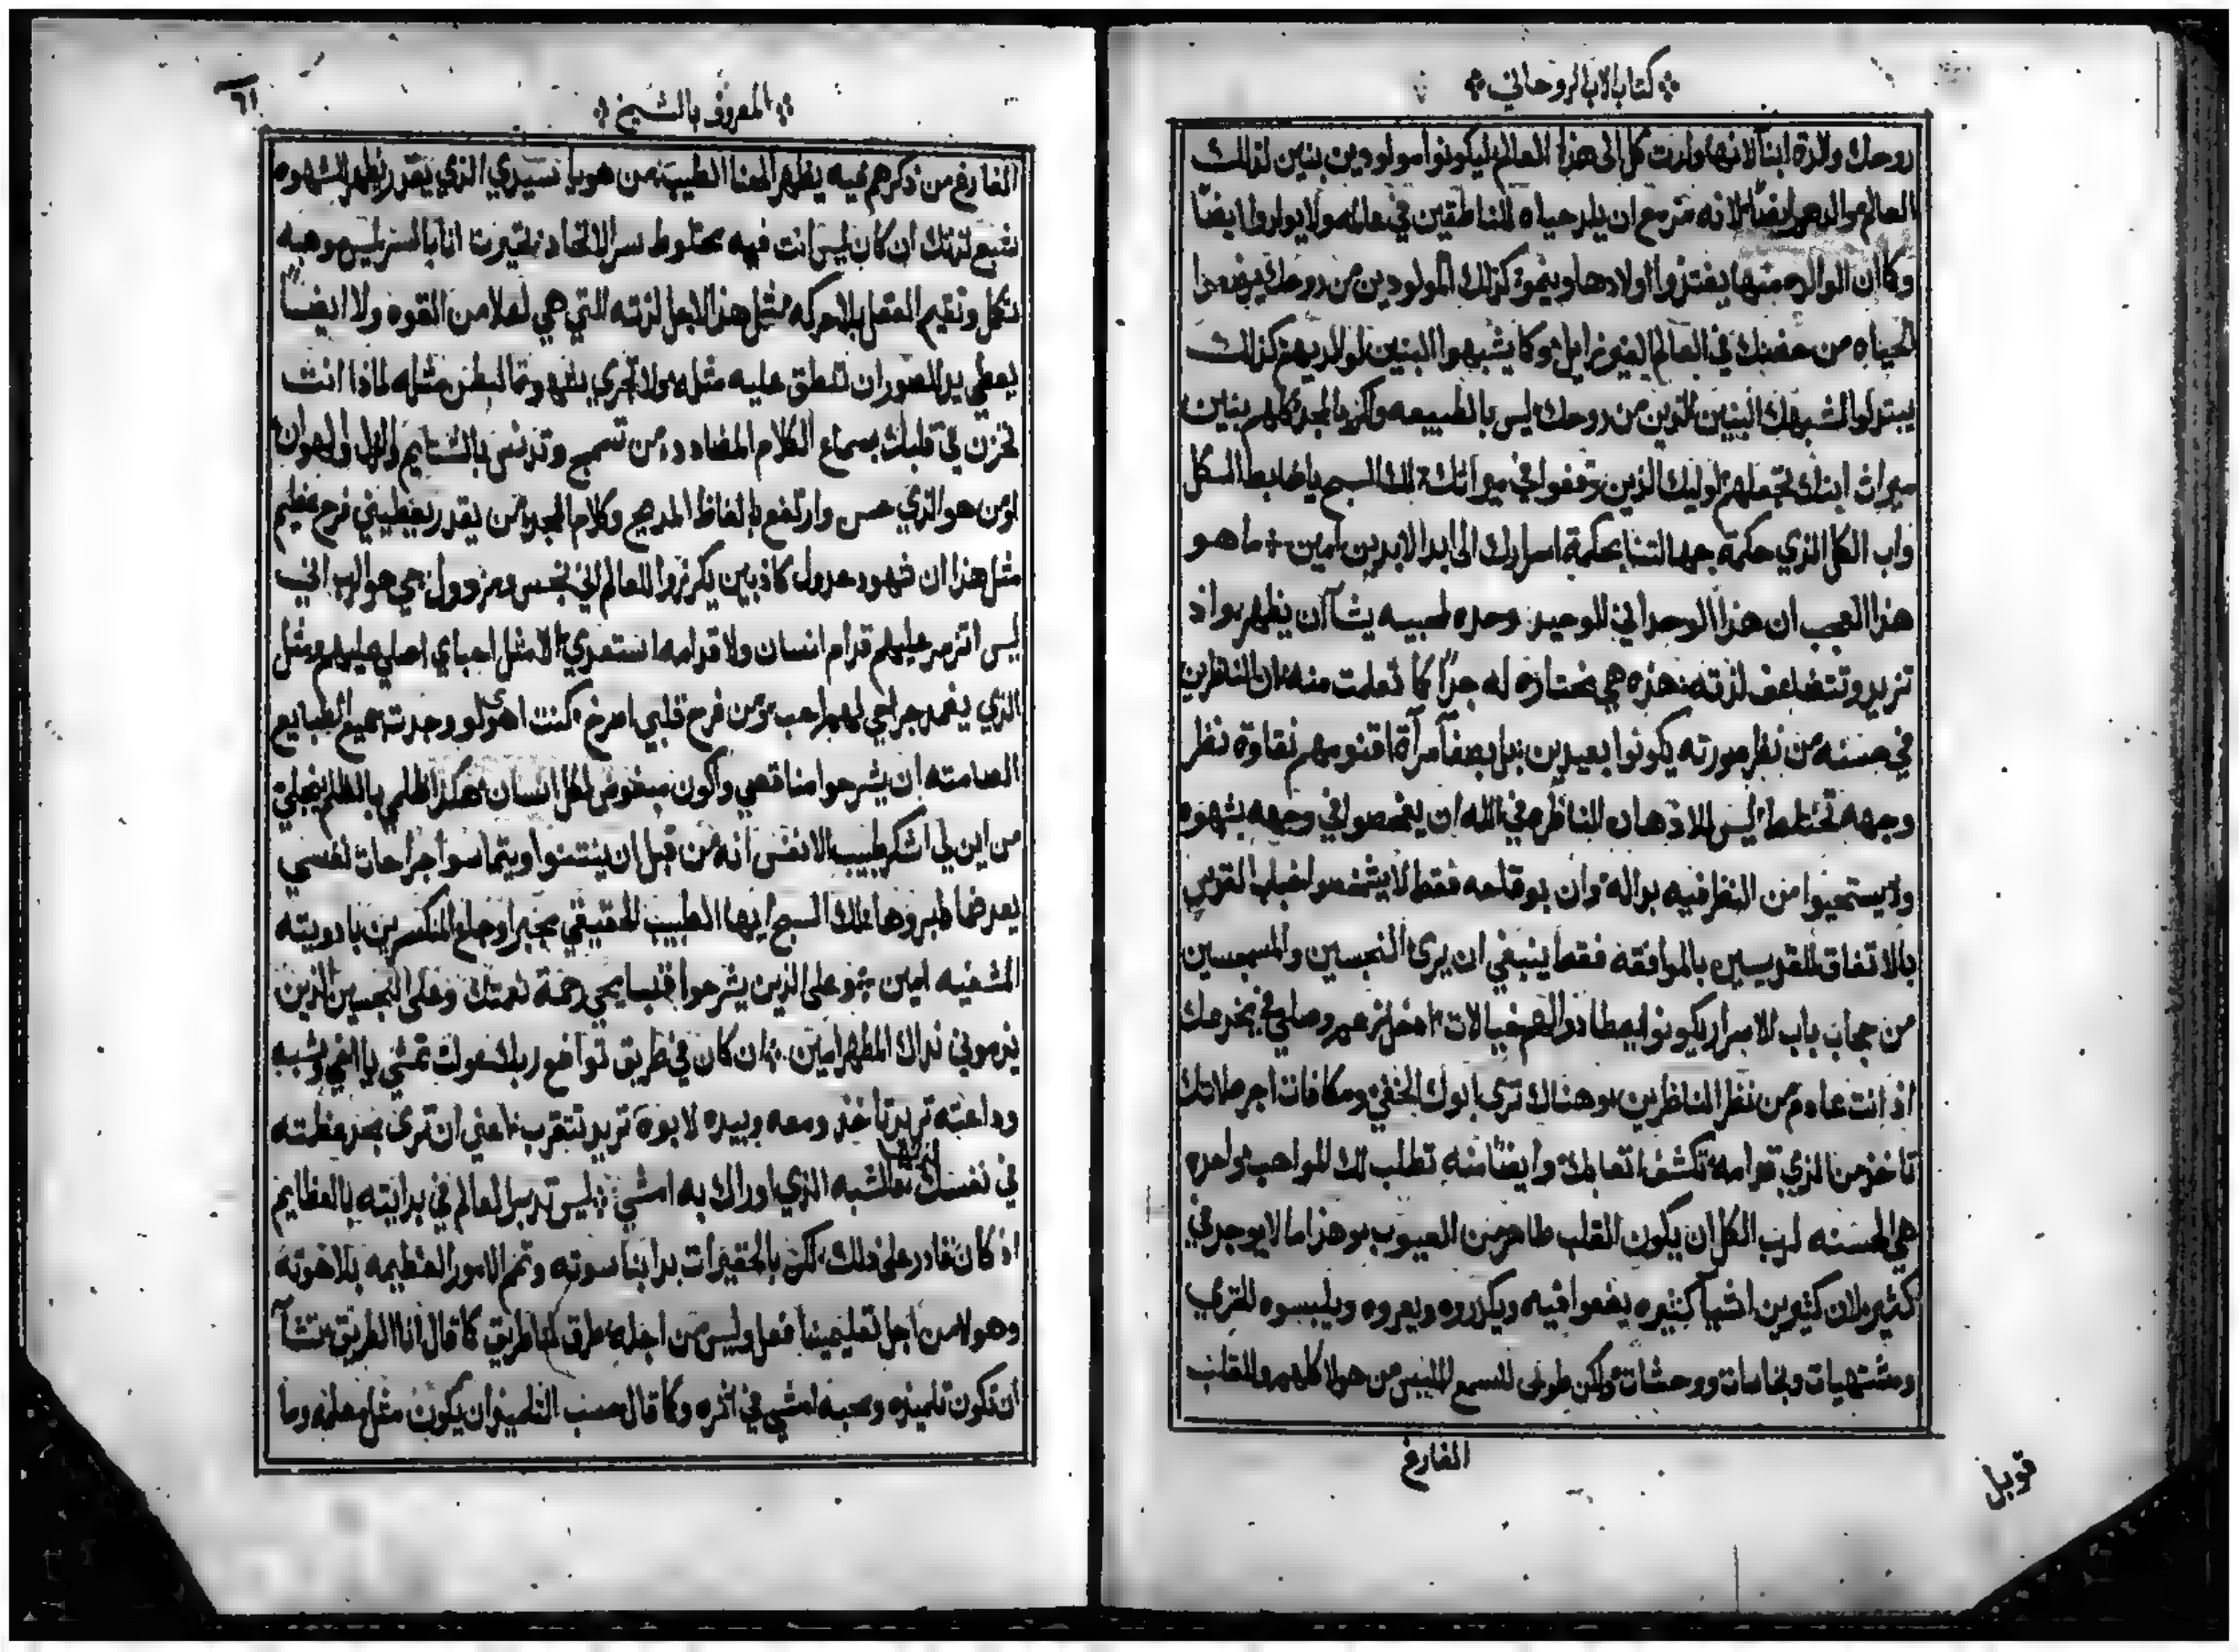 كتاب الاب الروحاني
روحك والدة ابنا لانها ولدت كل الى هذا العالم ليكونوا مولودين بنين لذلك
العالم والدهم ايضًا لانه مزمع ان يلد حياه للناطقين في عالمه ولا يولدوا ايضًا
وكما ان الوالده منها يغتذوا اولادها وينمو كذلك المولودين من روحك يرضعوا
الحياه من حضنك في العالم الغير زايل وكما يشبهوا البنين لوالديهم كذلك
يتبدلوا لشبهك البنين الذين من روحك ليس بالطبيعه ولكن بالمجد كلهم بنين
ميراث ابنك تجعلهم اوليك الذين في ميراثك لك السبح يا ضابط الكل
واب الكل الذي حكمة جهالتنا بحكمة اسرارك الى ابد الابدين امين ما هو
هذا العجب ان هذا الوحداني الوحيد وحده لمحبيه يشآ ان يظهر واذ
تزيد وتتضاعف لذته هذه هي مختاره له جدًا كما تعلمت منه ان الناظرين
في حسنه من نظر صورته يكونوا بعيدين بل بصفآ مرآة اقنومهم نقاوة نظر
وجهه تختلط ليس للاذهان الناظره في الله ان يتفحصوا في وجهه بشهوه
ولا يستحيوا من النظر فيه
بالاتفاق للقديسين بالموافقه فقط ينبغي ان يرى النجسين والمسجسين
من حجاب باب الاسرار يكونوا
اذ انت عادم من نظر الناظرين وهناك ترى ابوك الخفي ومكافات اجر صلاتك
تاخذ من الذي قدامه تكشف اتعابك وايضًا منه تطلب لك المواهب واحده
هي الحسنه لرب الكل ان يكون القلب طاهر من العيوب وهذا ما لا يوجد في
كثير لان كثيرين اشيآ كثيره يضعوا فيه ويكدروه ويعروه ويلبسوه
ومشتهيات ونجاسات ووحشات ولكن طوبى للسمع من هولا كلهم وللقلب
الفارغ
قوبل
المعروف بالشيخ
٦١
الفارغ من ذكرهم فيه يظهر الهنا الطيب من هو يا سيدي الذي يقدر يظهر لشهوه
تتبع لذتك ان كان ليس انت فيه مخلوط سر الاتحاد تحيرت انا بالسر ليس هو هبه
تكل وتقيم العقل بلا حركه مثل هذا لاجل لذته التي هي لعلا من القوه ولا ايضًا
يعطي يد للصور ان تنطق عليه مثله ولا اخرى مثله لماذا انت
تحزن في قلبك بسماع الكلام المضادد من تسمج وتدنس بالشتايم والهزل والهوان
او من هو الذي حسن وارتفع بالفاظ المديح وكلام المجد من يقدر يعطيني فرح عظيم
مثل هذا ان شهود عدول كاذبين يكرزوا للعالم اني نجس ومرذول حي هو الرب اني
ليس اتذمر عليهم قدام انسان ولا قدامه استعدي الا مثل احباي اصلي عليهم ومثل
الذي يضمد جراحي لهم احب ومن فرح قلبي اصرخ كنت اهوى لو وجدت جميع الطبايع
الصامته ان يشرحوا مناقصي واكون مبغوض لكل انسان هكذا ظلمي بالظلم
من اين لي اشكر طبيب الانفس انه من قبل ان ينتنوا ويتماسوا جراحات نفسي
يعرضها لمبروها لك السبح ايها الطبيب الحقيقي مجبر اوجاع المنكسرين بادويته
المشفيه امين وعلى الذين يشرحوا خفيا يحي رحمة نعمتك وعلى النجسين الذين
يذموني نداك المطهر امين ان كان في طريق تواضع ربك تمشي يا اخي وشبه
وداعته تريد تاخذ ومعه وبيده لابوه تريد تتقرب اعني ان ترى مجد عظمته
في نفسك الشبه الذي اوراك به امشي ليس تدبير العالم في بدايته بالعظايم
اذ كان قادر على ذلك لكن بالحقيرات بدا بناسوته وتمم الامور العظيمه بلاهوته
وهولا من اجل تعليمنا فعل وليس من اجله طرق لنا طريق كما قال انا الطريق تشآ
ان تكون تلميذه ومحبه امشي في اثره وكما قال حسب التلميذ ان يكون مثل معلمه وما